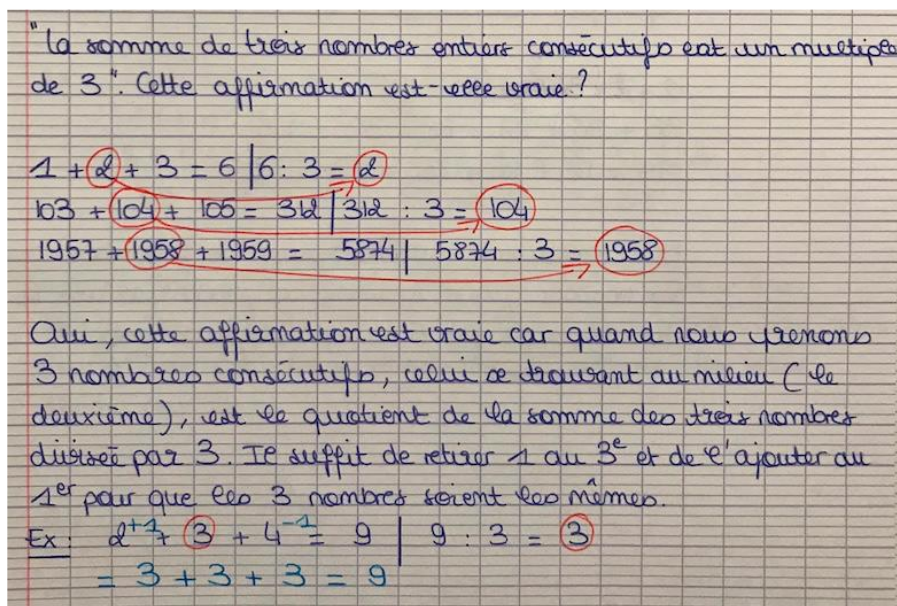 "La somme de trois nombres entiers consécutifs est un multiple
de 3". Cette affirmation est-elle vraie ?
1 + 2 + 3 = 6 | 6 : 3 = 2
103 + 104 + 105 = 312 | 312 : 3 = 104
1957 + 1958 + 1959 = 5874 | 5874 : 3 = 1958
Oui, cette affirmation est vraie car quand nous prenons
3 nombres consécutifs, celui se trouvant au milieu (le
deuxième), est le quotient de la somme des trois nombres
divisée par 3. Il suffit de retirer 1 au 3e et de l'ajouter au
1er pour que les 3 nombres soient les mêmes.
Ex : 2+1 + 3 + 4-1 = 9 | 9 : 3 = 3
= 3 + 3 + 3 = 9